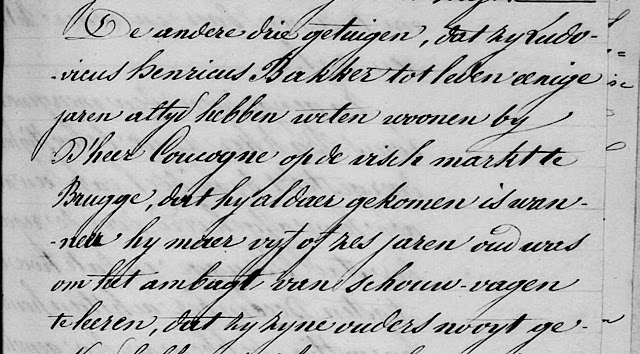 De andere drie getuigen, dat zy Ludo-
-vicus henricus Bakker tot leden eenige
jaren altyd hebben weten woonen by
D'heer Coucogne op de visch markt te
Brugge, dat hy aldaer gekomen is wan-
-neer hy maer vyf of zes jaren oud was
om het ambagt van schouw-vagen
te leeren, dat zy zyne ouders nooyt ge-